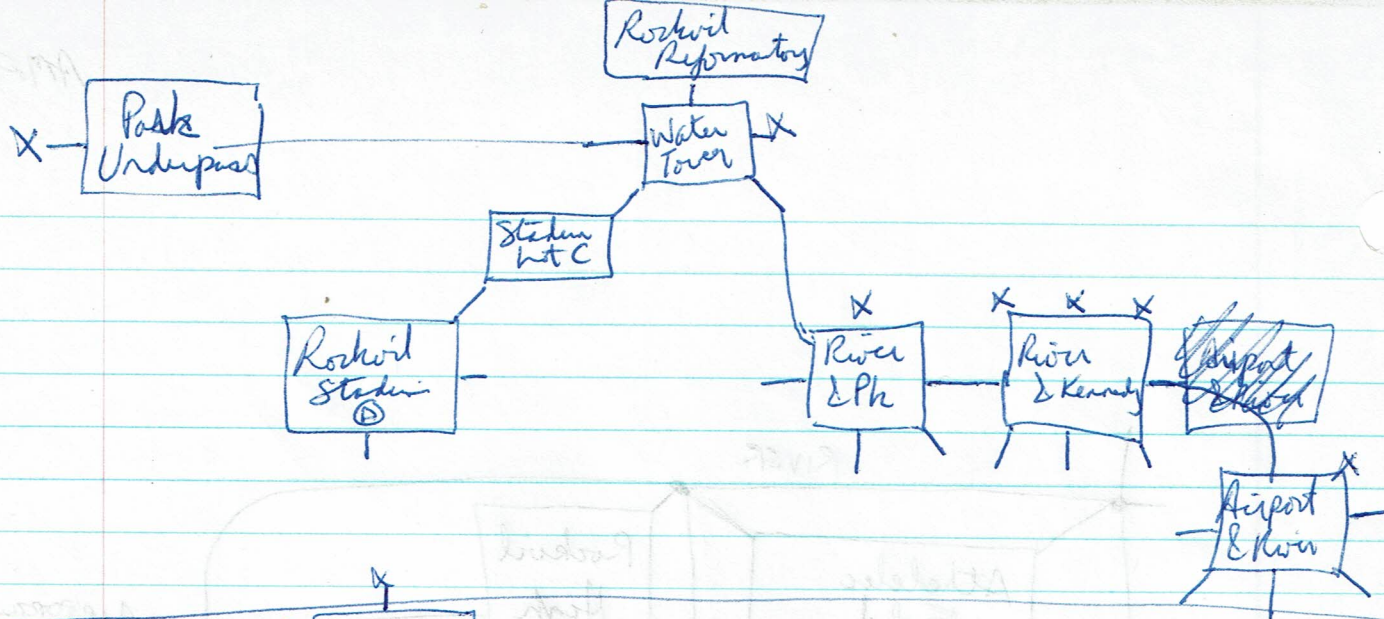 Rockvil
Reformatory
X
Park
Underpass
Water
Tower
X
Stadium
Lot C
Rockvil
Stadium
D
X
River
& Pk
X
X
X
River
& Kennedy
Airport
& River
X
Airport
& River
RIVER
Rockvil
High
X